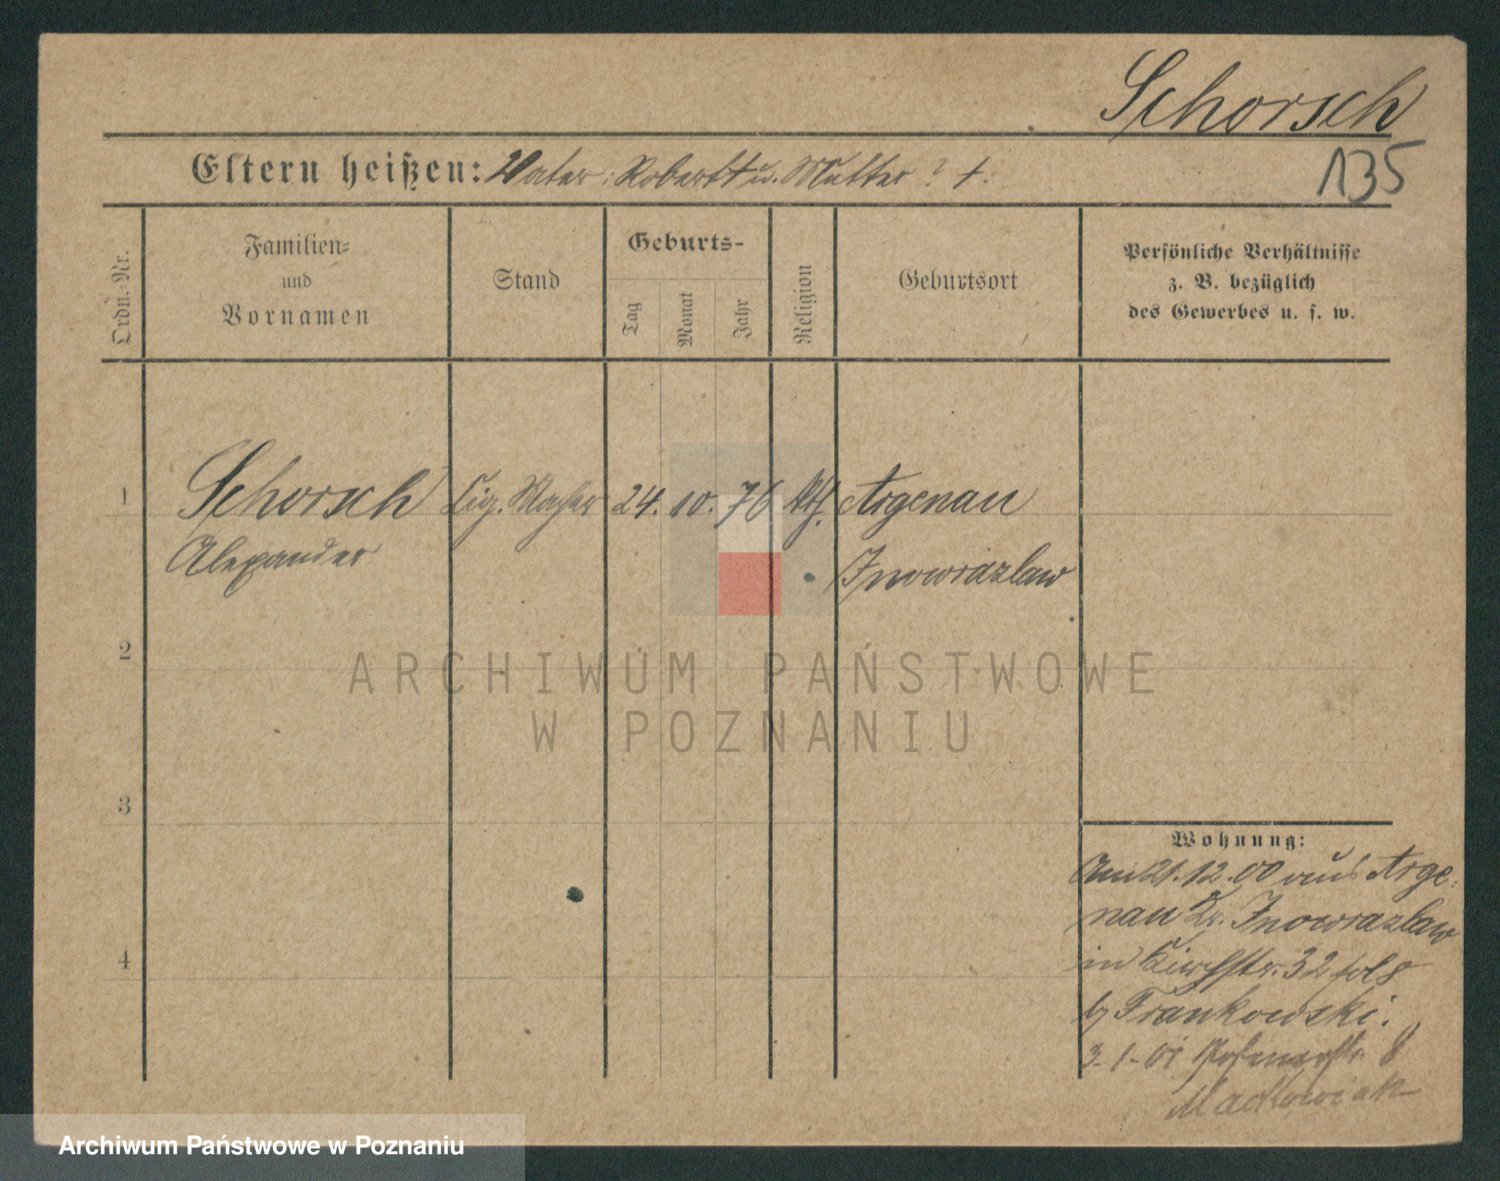 Schorsch
135
Eltern heißen: Vater: Robert u. Mutter ? †.
Ordn.-Nr.
Familien-
und
Vornamen
Stand
Geburts-
Tag
Monat
Jahr
Religion
Geburtsort
Persönliche Verhältnisse
z. B. bezüglich
des Gewerbes u. s. w.
1 Schorsch Cig. Macher 24. 10. 76 kth. Argenau
Alexander Inowrazlaw
2
ARCHIWUM PAŃSTWOWE
W POZNANIU
3
Wohnung:
Am 21.12.00 aus Arge-
nau Kr. Inowrazlaw
in Kirchstr. 32
b/ Frankowski.
3-1-01 Posenerstr. 8
Maćkowiak
4
Archiwum Państwowe w Poznaniu